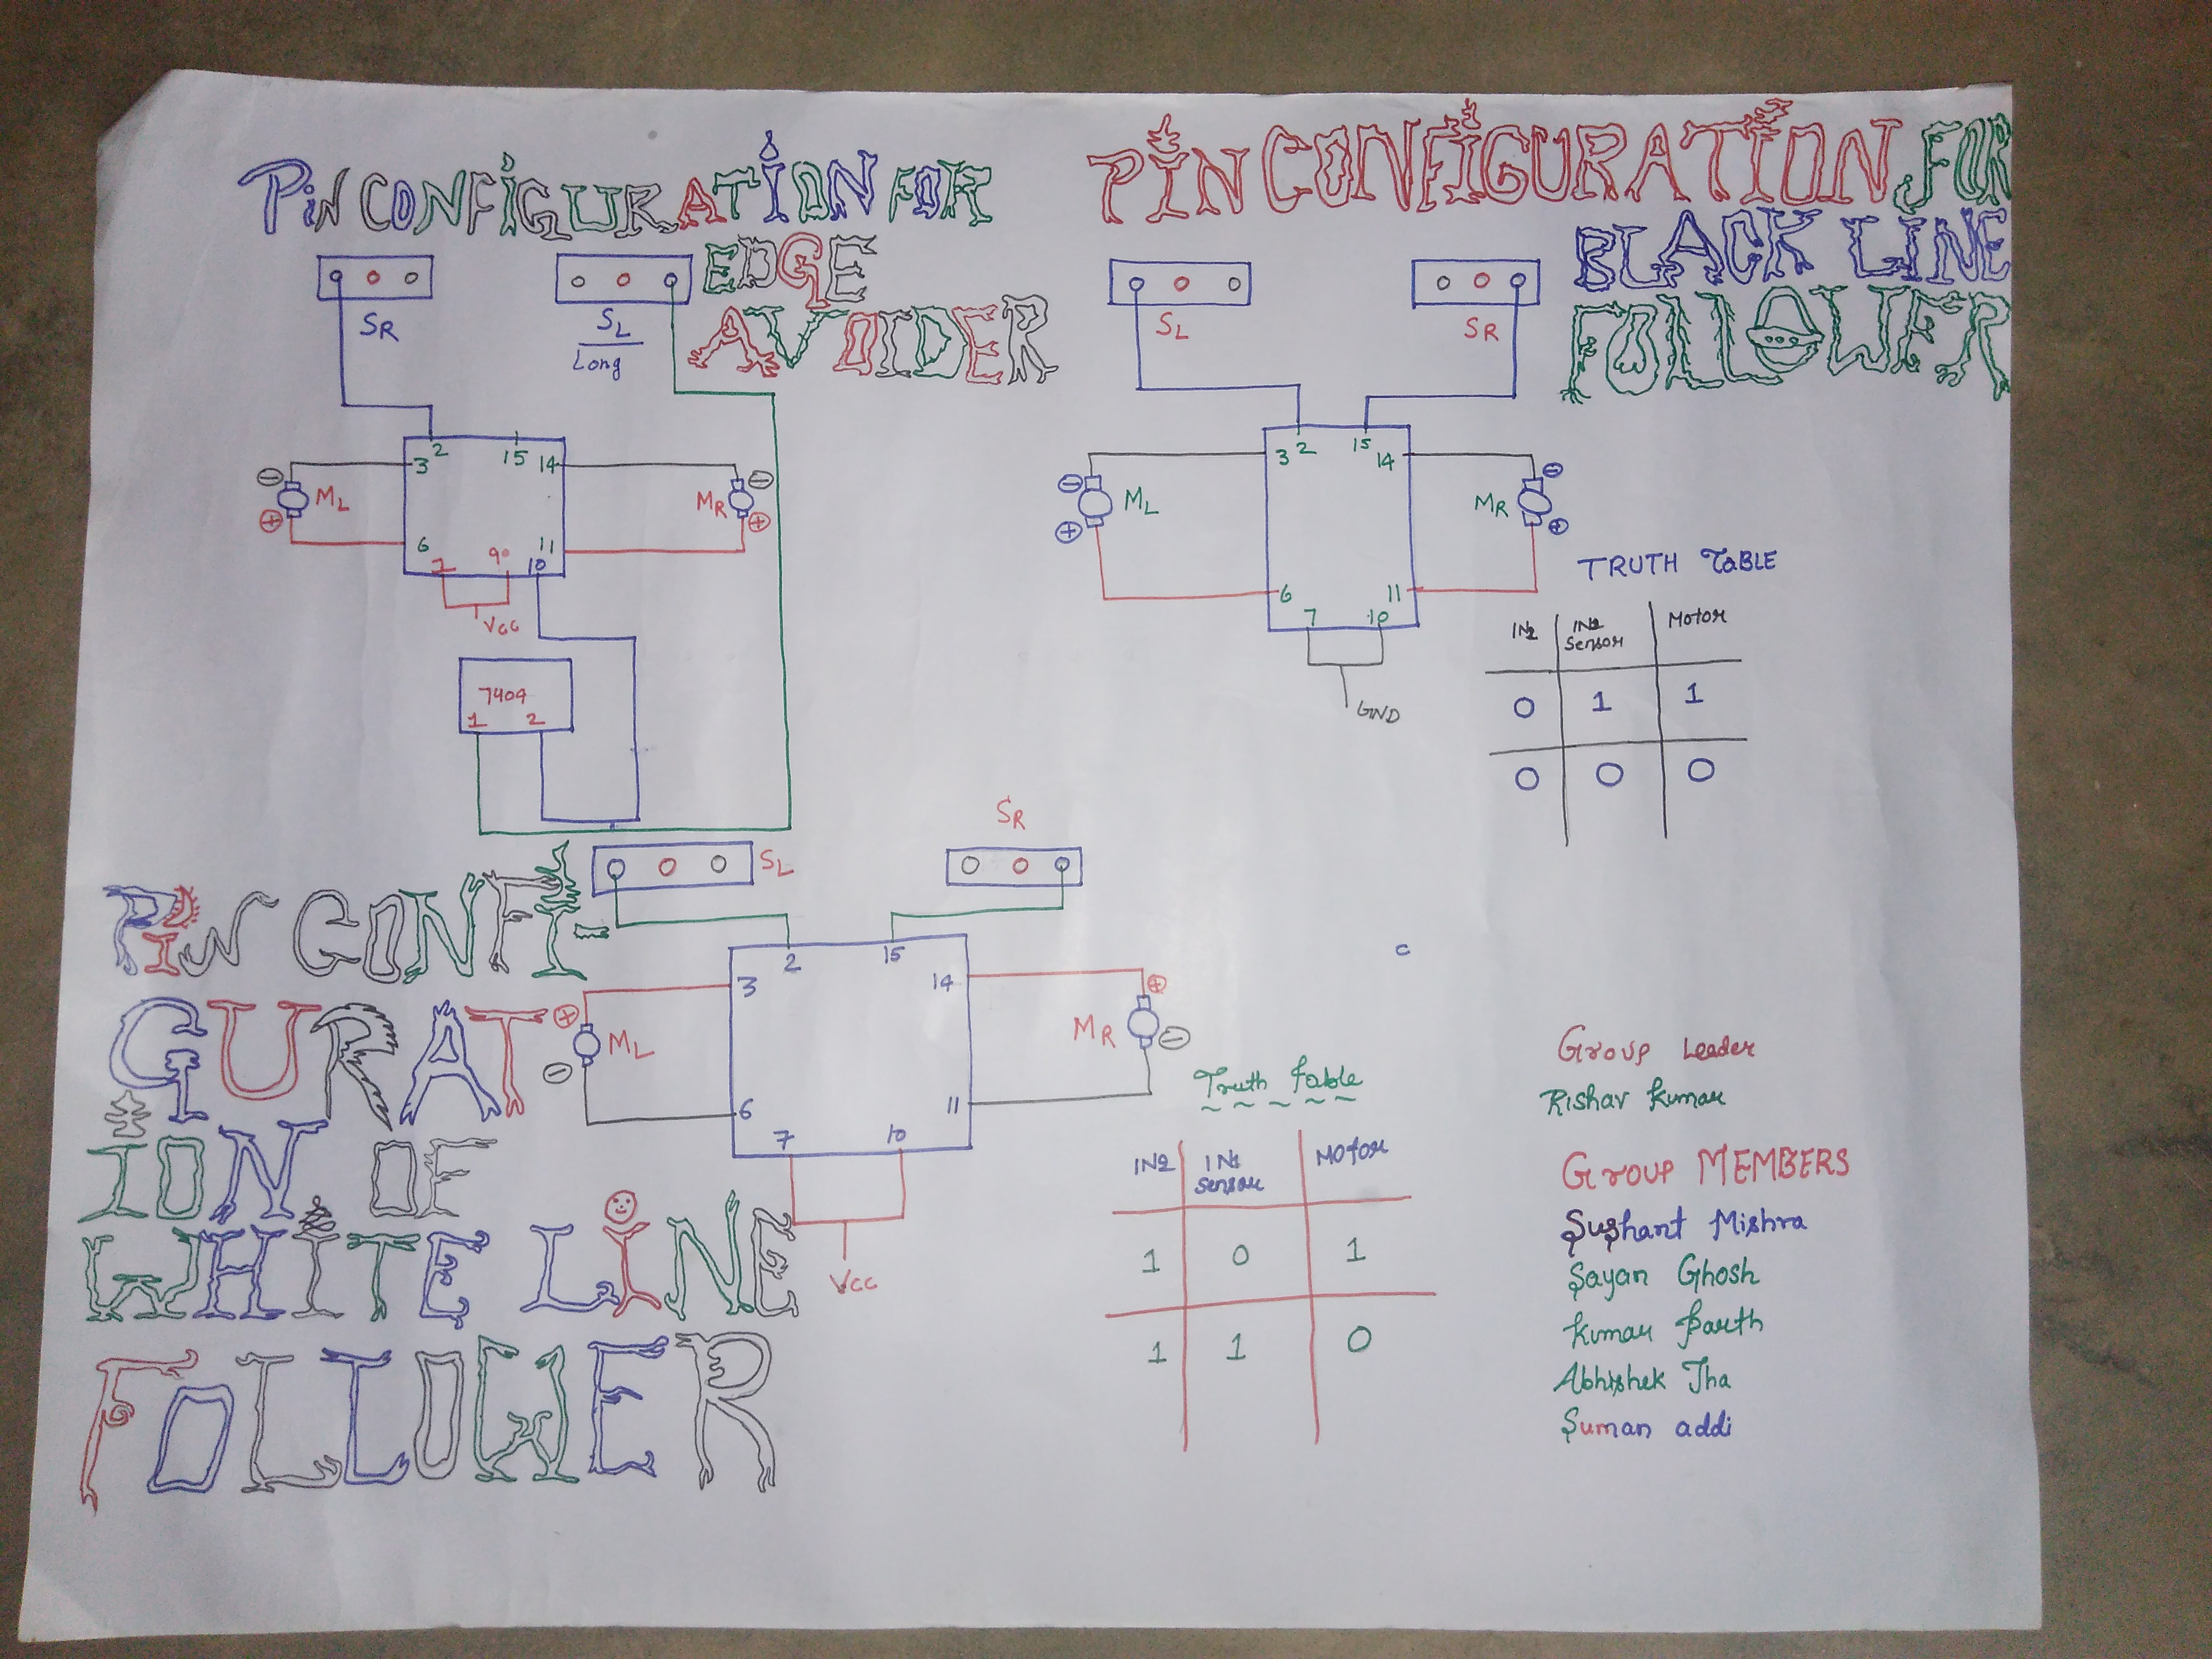 PiN CONFiGURATiON FOR
EDGE
AVOIDER
SR
SL
Long
2
15
3
14
ML
MR
6
11
7
9
10
VCC
7404
1
2
PiN CONFiGURATiON FOR
BLACK LINE
FOLLOWER
SL
SR
2
15
3
14
ML
MR
6
11
7
10
GND
TRUTH TaBLE
IN2
Sensor
Motor
0 1 1
0 0 0
PiN CONFi-
GURAT
ION OF
WHiTE LiNE
FOLLOWER
SL
SR
2
15
3
14
ML
MR
6
11
7
10
VCC
Truth table
IN2 IN1 MOTOR
Sensor
1 0 1
1 1 0
c
Group Leader
Rishav Kumar
GroUP MEMBERS
Sushant Mishra
Sayan Ghosh
Kumar Parth
Abhishek Jha
Suman addi